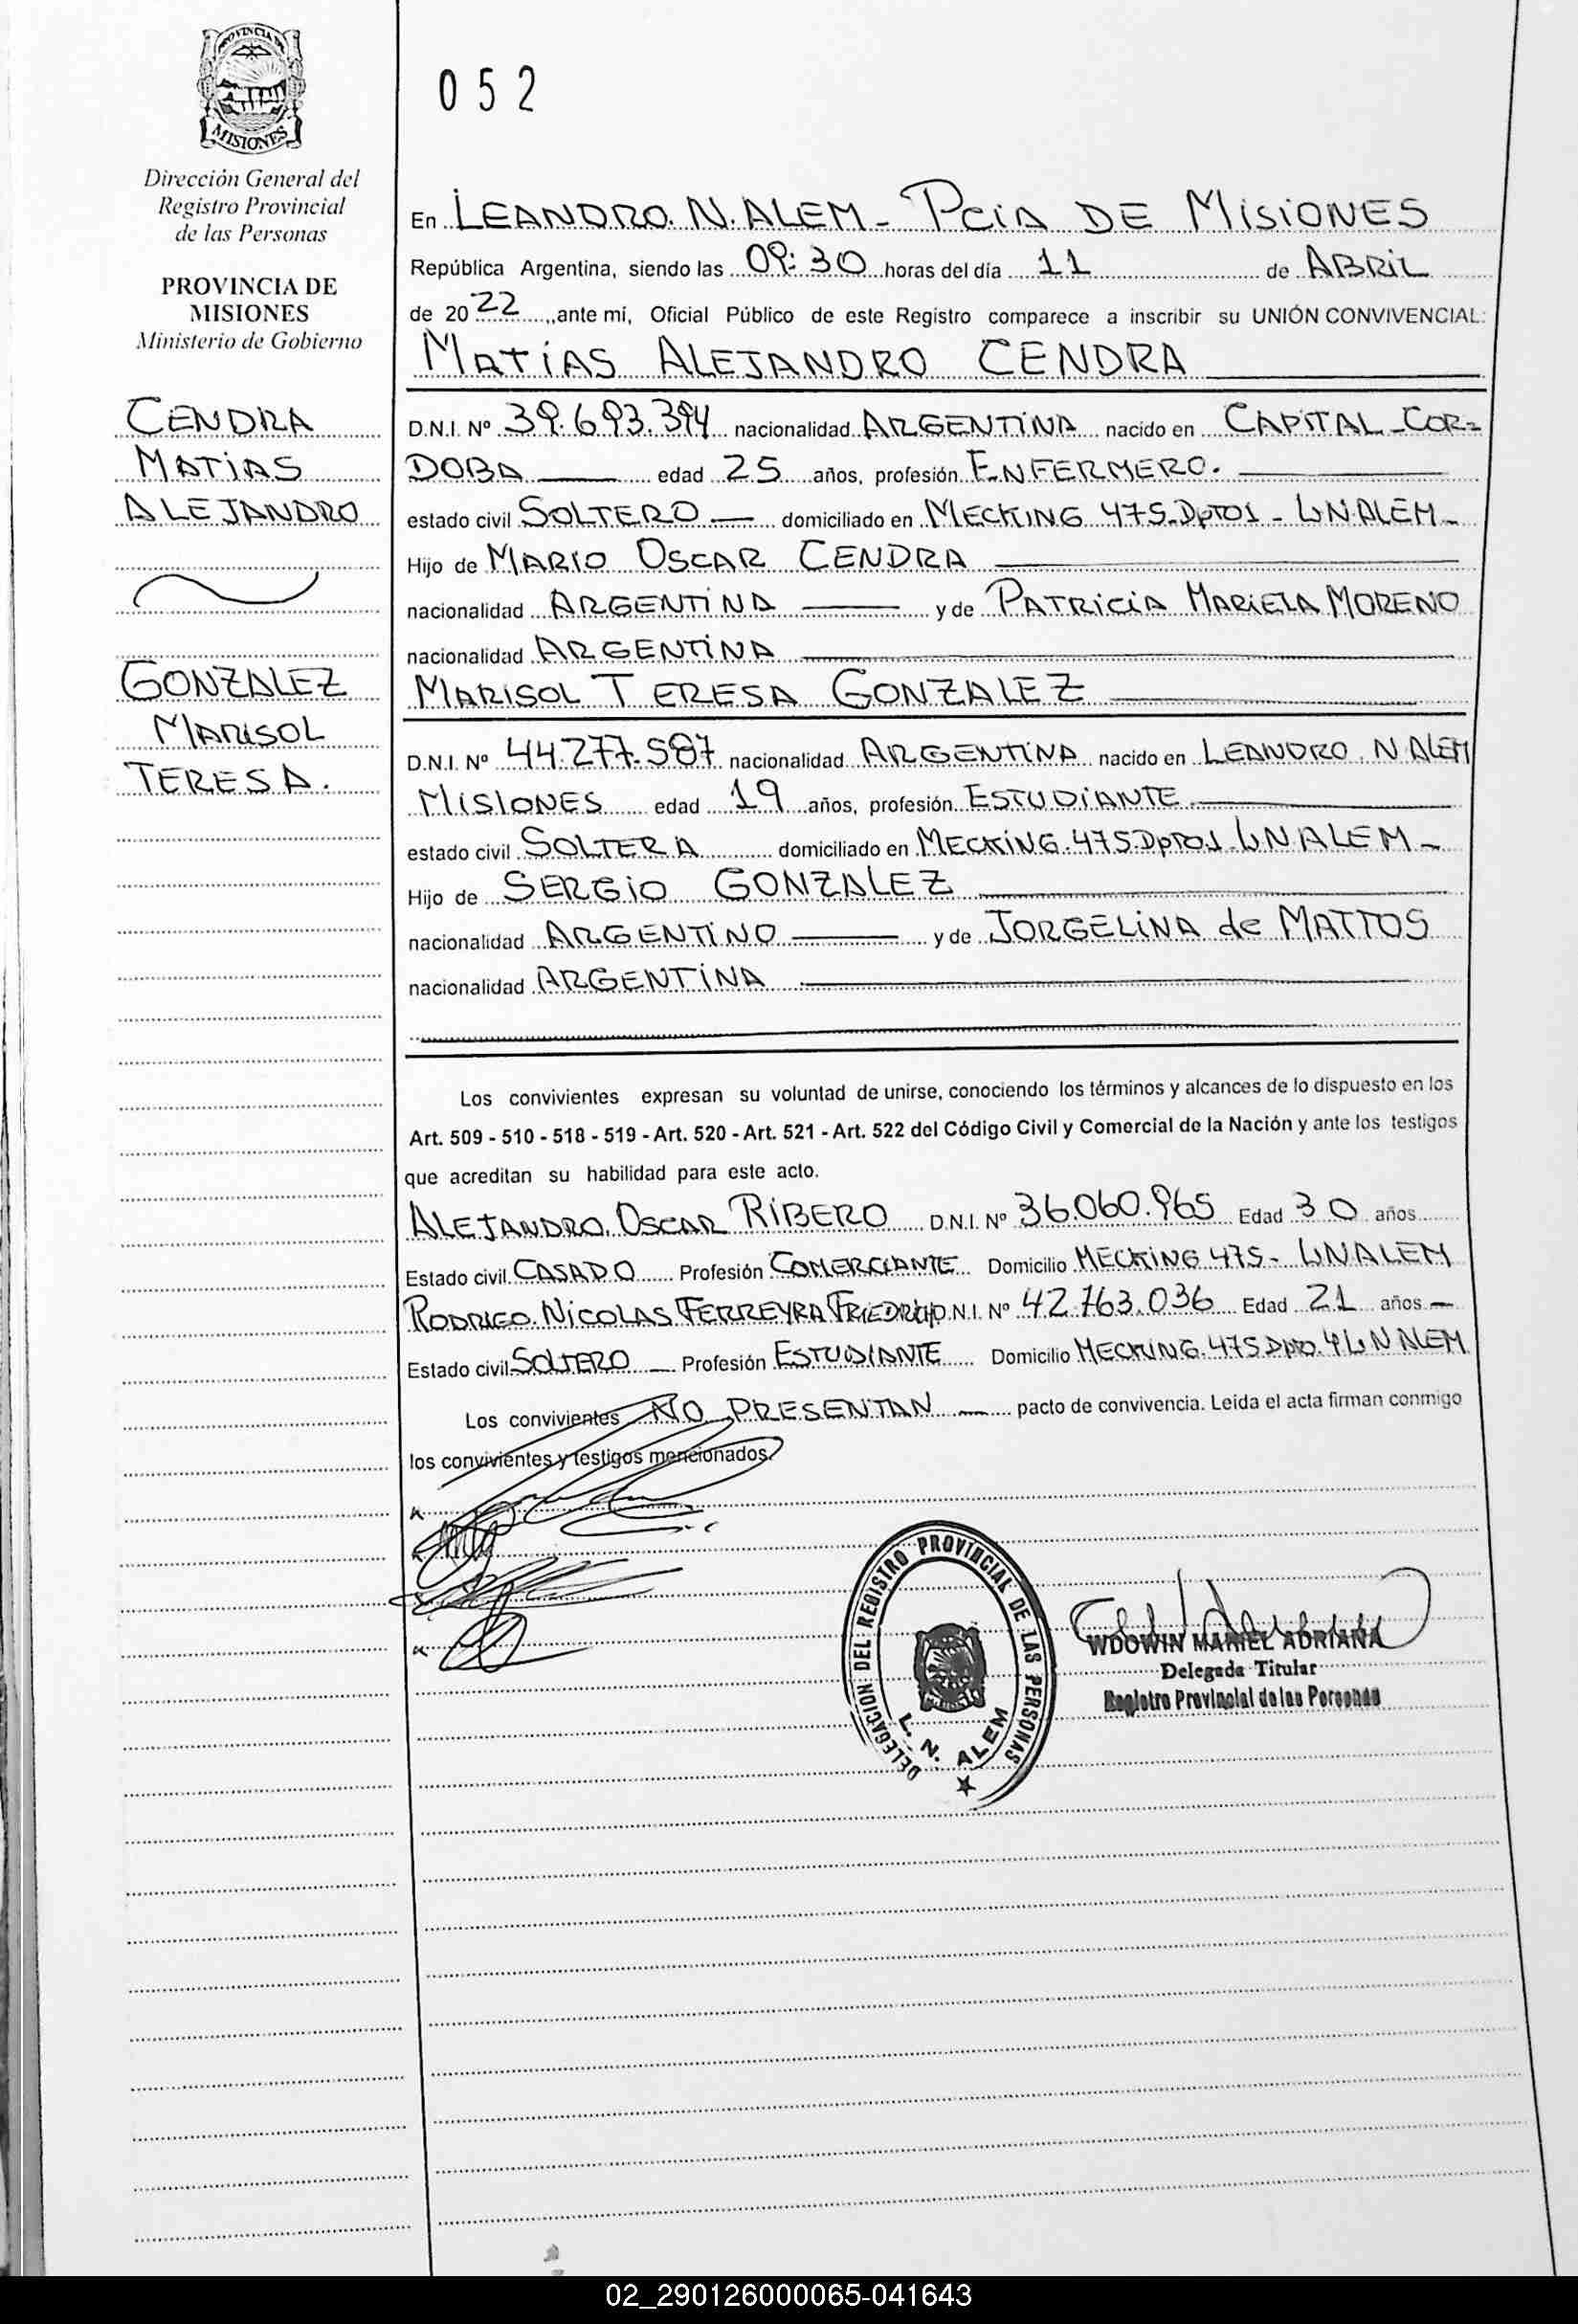 PROVINCIA DE
MISIONES
Dirección General del
Registro Provincial
de las Personas
PROVINCIA DE
MISIONES
Ministerio de Gobierno
CENDRA
MATÍAS
ALEJANDRO
GONZALEZ
MARISOL
TERESA.
052
En LEANDRO. N. ALEM - PCIA DE MISIONES
República Argentina, siendo las 09:30 horas del día 11 de ABRIL
de 2022, ante mí, Oficial Público de este Registro comparece a inscribir su UNIÓN CONVIVENCIAL:
MATÍAS ALEJANDRO CENDRA
D.N.I. Nº 39.693.394 nacionalidad ARGENTINA nacido en CAPITAL - COR=
DOBA edad 25 años, profesión ENFERMERO.
estado civil SOLTERO domiciliado en MECKING 475 - DPTO 1 - L.N. ALEM -
Hijo de MARIO OSCAR CENDRA
nacionalidad ARGENTINA y de PATRICIA MARIELA MORENO
nacionalidad ARGENTINA
MARISOL TERESA GONZALEZ
D.N.I. Nº 44.277.587 nacionalidad ARGENTINA nacido en LEANDRO. N ALEM
MISIONES edad 19 años, profesión ESTUDIANTE
estado civil SOLTERA domiciliado en MECKING. 475 DPTO 1 L.N ALEM -
Hijo de SERGIO GONZALEZ
nacionalidad ARGENTINO y de JORGELINA de MATTOS
nacionalidad ARGENTINA
Los convivientes expresan su voluntad de unirse, conociendo los términos y alcances de lo dispuesto en los
Art. 509 - 510 - 518 - 519 - Art. 520 - Art. 521 - Art. 522 del Código Civil y Comercial de la Nación y ante los testigos
que acreditan su habilidad para este acto.
ALEJANDRO. OSCAR RIBERO D.N.I. Nº 36.060.965 Edad 30 años
Estado civil CASADO Profesión COMERCIANTE Domicilio MECKING 475 - L.N ALEM
RODRIGO NICOLAS FERREYRA FRIEDRICH D.N.I. Nº 42.763.036 Edad 21 años -
Estado civil SOLTERO - Profesión ESTUDIANTE Domicilio MECKING. 475 Dpto. 4 L N ALEM
Los convivientes NO PRESENTAN - pacto de convivencia. Leída el acta firman conmigo
los convivientes y testigos mencionados.
DELEGACION DEL REGISTRO PROVINCIAL DE LAS PERSONAS
L. N. ALEM
WDOWIN MARIEL ADRIANA
Delegada Titular
Registro Provincial de las Personas
02_290126000065-041643